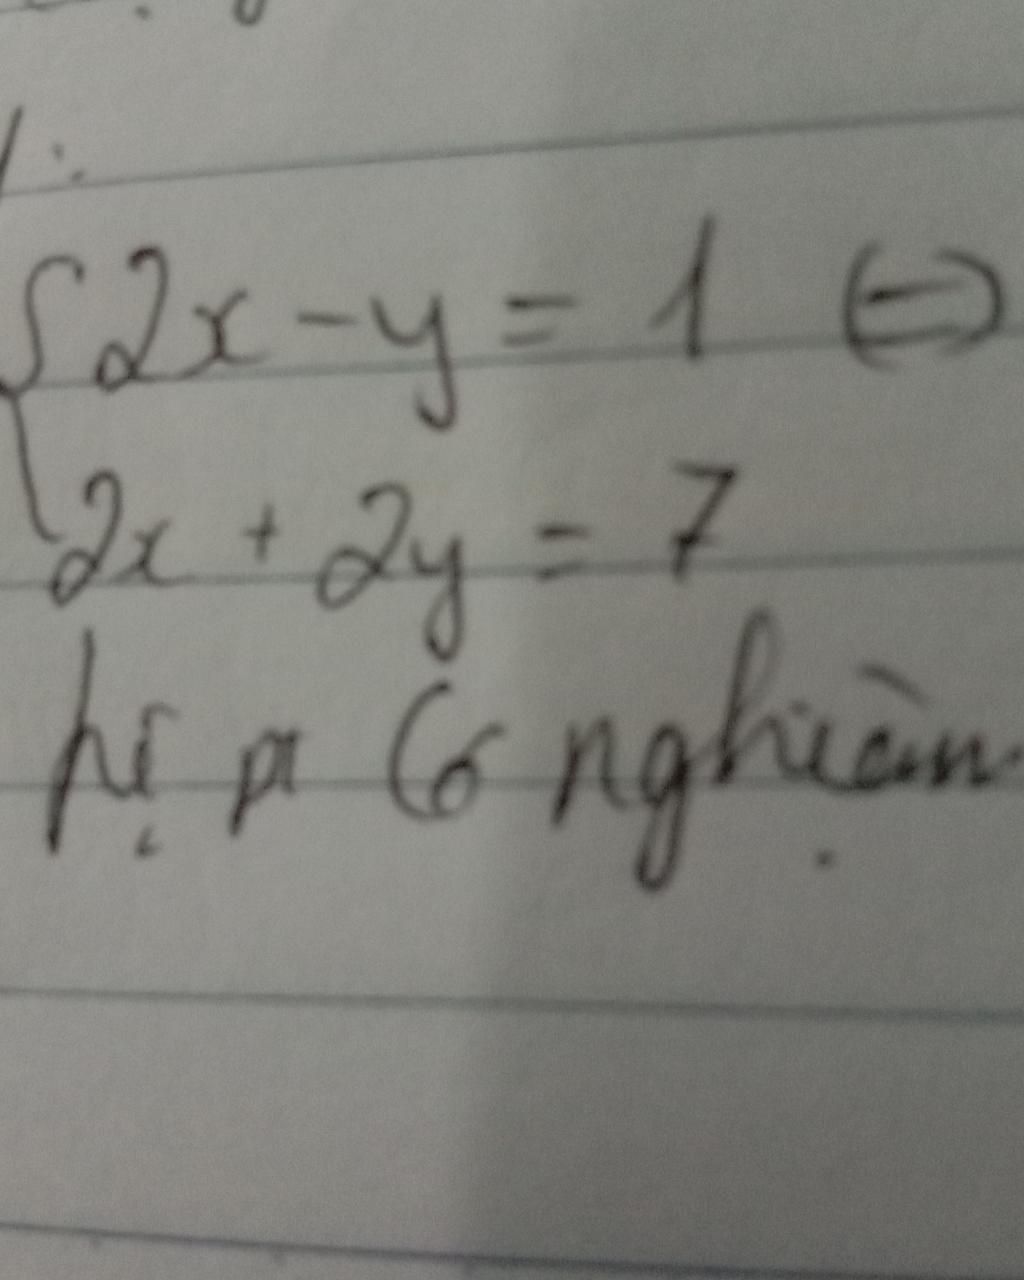 1:
{2x - y = 1 (=)
2x + 2y = 7
pt có nghiệm